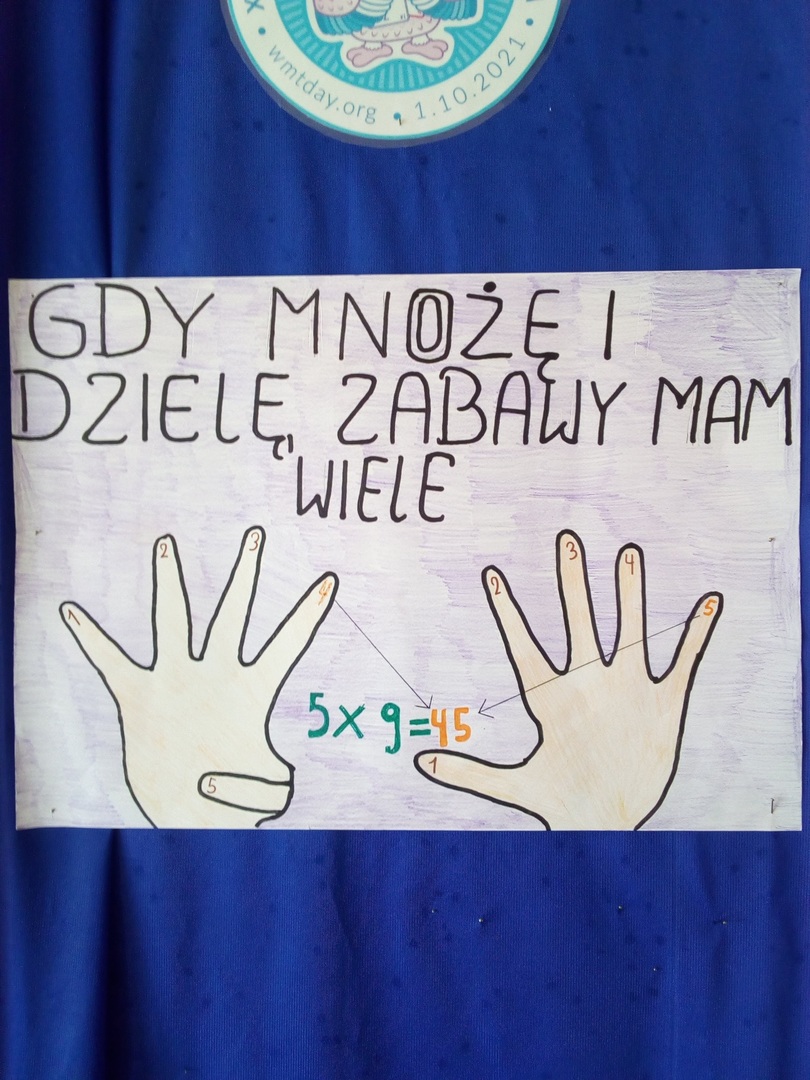 wmtday.org • 1.10.2021
GDY MNOŻĘ I
DZIELĘ, ZABAWY MAM
WIELE
1
2
3
4
5
2
3
4
5
1
5x9=45